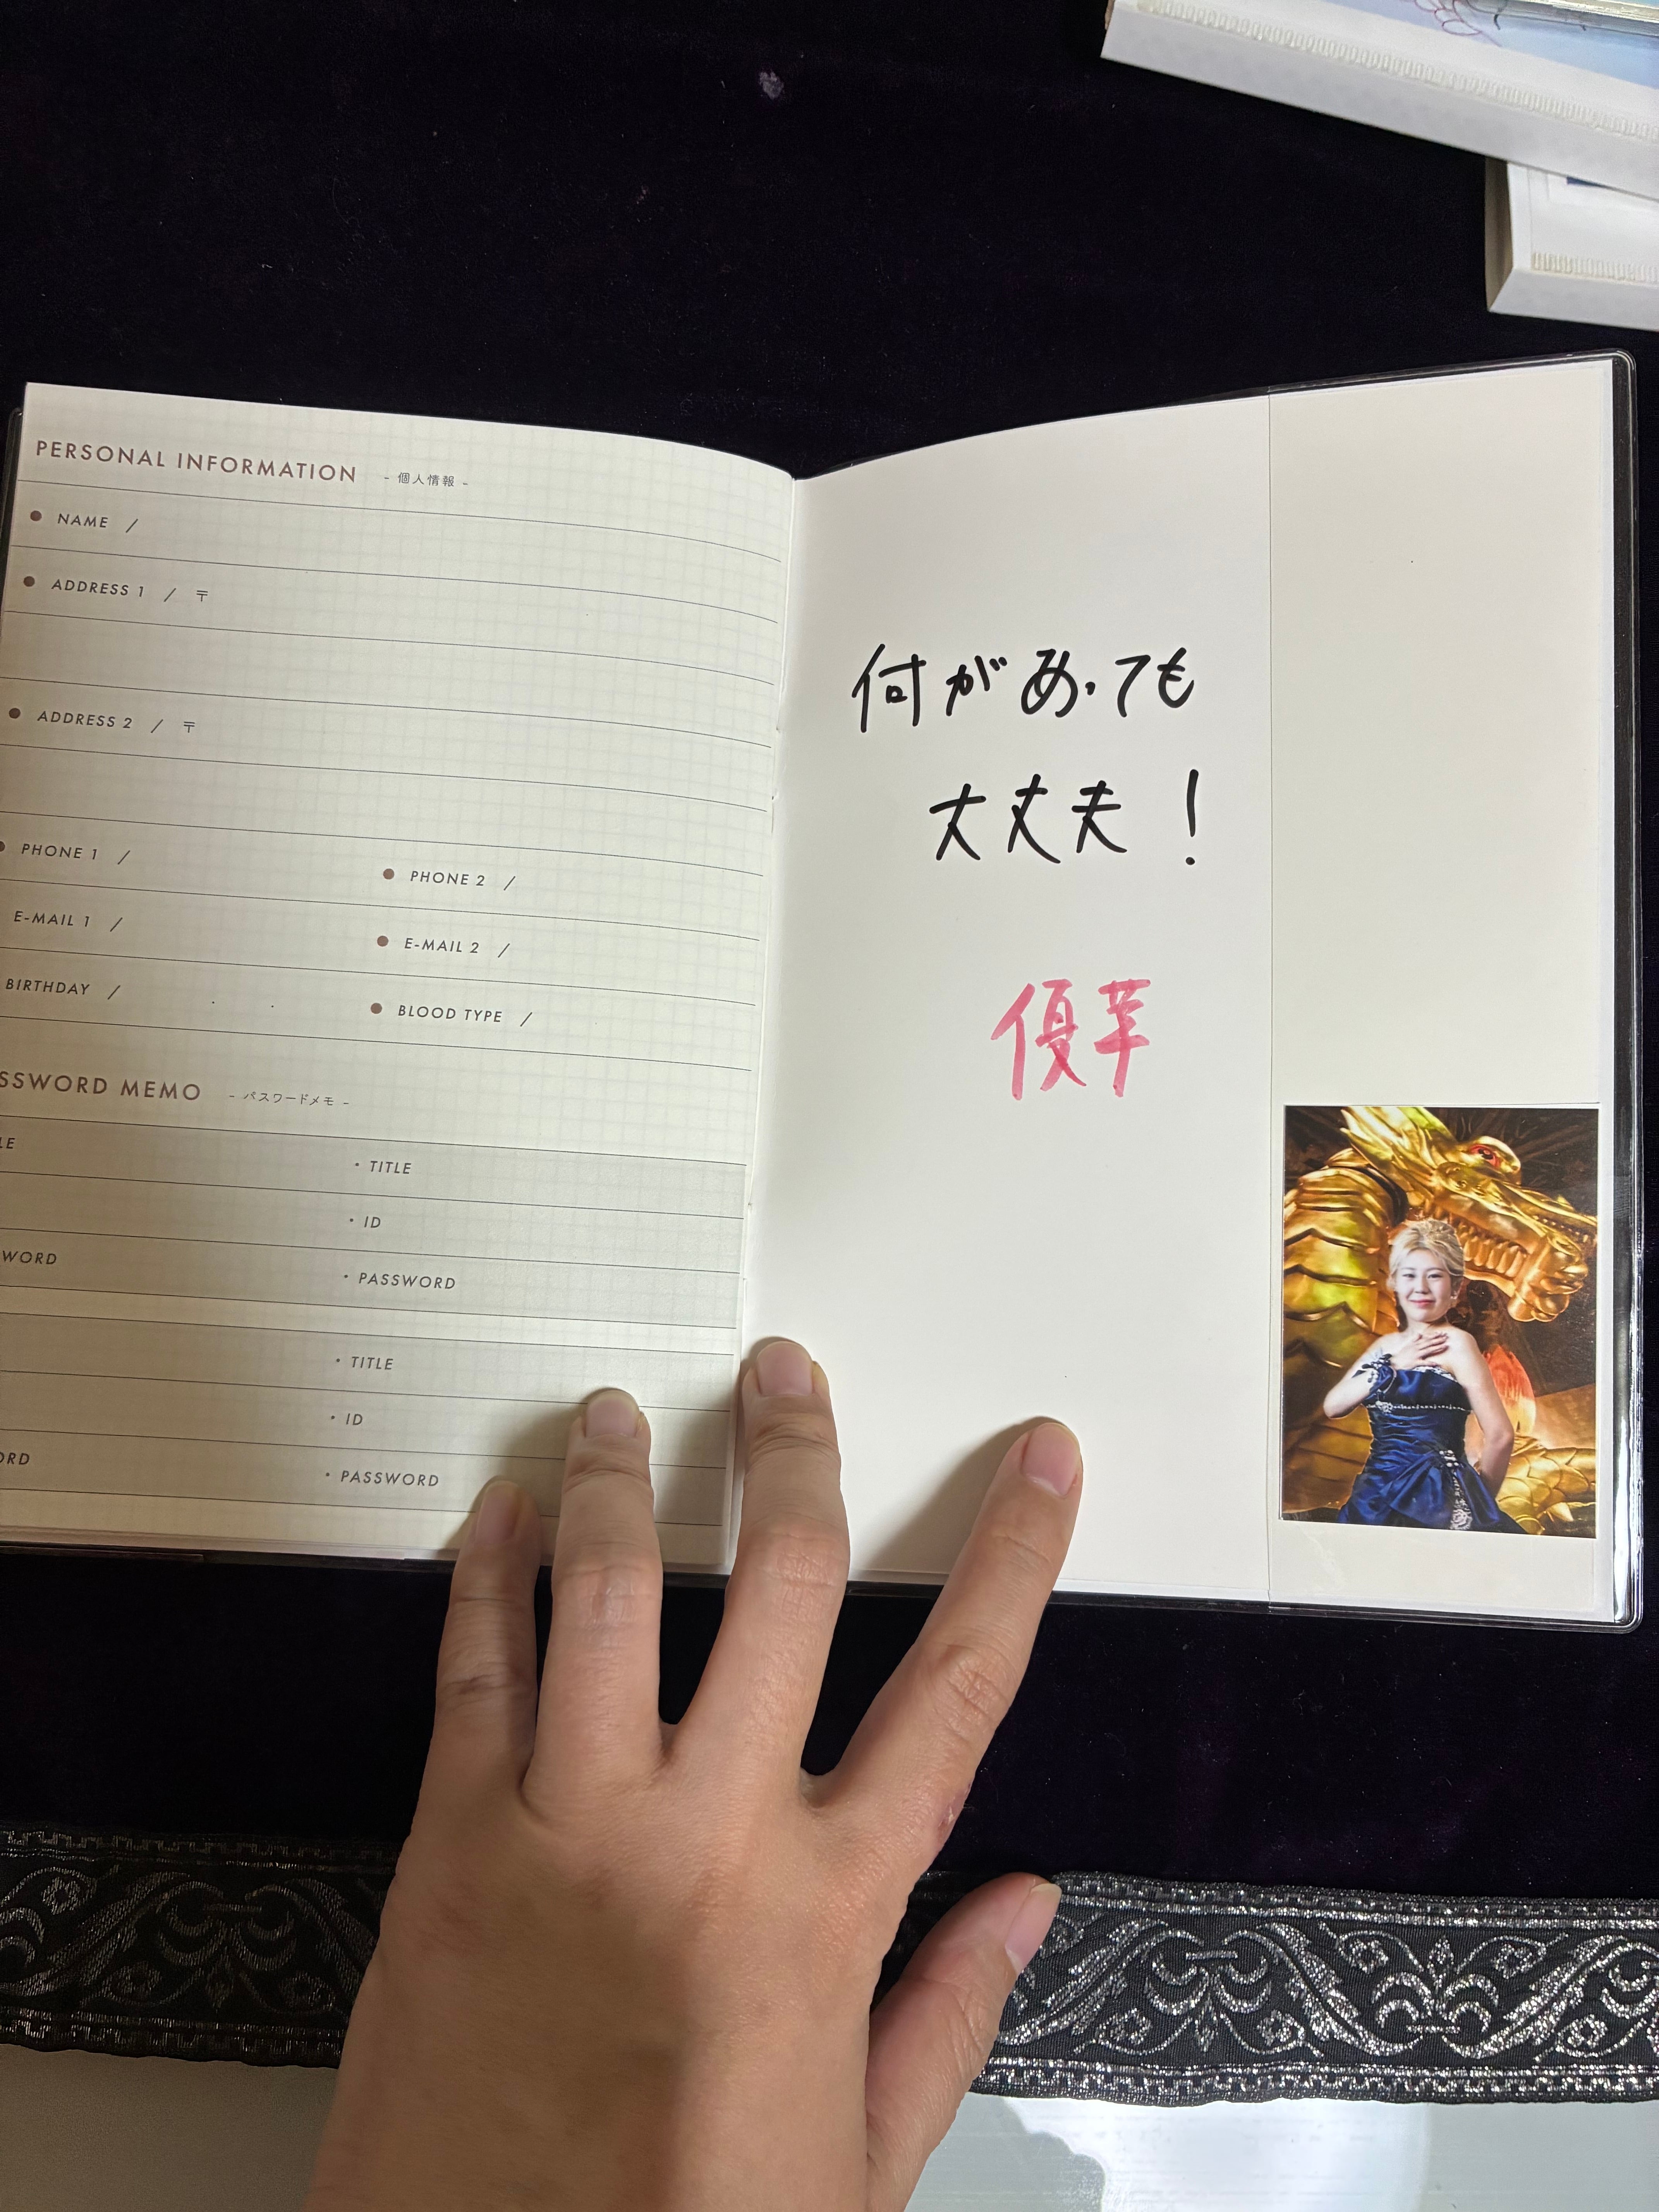 PERSONAL INFORMATION - 個人情報 -
NAME /
ADDRESS 1 / 〒
ADDRESS 2 / 〒
PHONE 1 / PHONE 2 /
E-MAIL 1 / E-MAIL 2 /
BIRTHDAY / . . BLOOD TYPE /
SSWORD MEMO - パスワードメモ -
LE ・TITLE
・ID
WORD ・PASSWORD
・TITLE
・ID
ORD ・PASSWORD
何があっても
大丈夫!
優芋